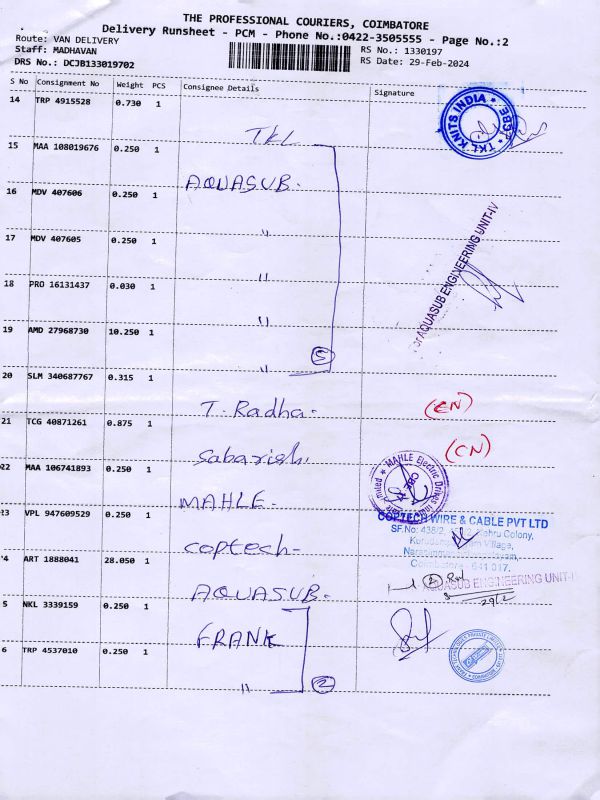 THE PROFESSIONAL COURIERS, COIMBATORE
Delivery Runsheet - PCM - Phone No.:0422-3505555 - Page No.:2
Route: VAN DELIVERY
Staff: MADHAVAN
DRS No.: DCJB133019702
RS No.: 1330197
RS Date: 29-Feb-2024
S No Consignment No Weight PCS Consignee Details Signature
14 TRP 4915528 0.730 1 TKL
TKL KNITS INDIA
15 MAA 108019676 0.250 1 AQUASUB.
16 MDV 407606 0.250 1 "
17 MDV 407605 0.250 1 "
18 PRO 16131437 0.030 1 "
AQUASUB ENGINEERING UNIT-IV
19 AMD 27968730 10.250 1 "
5
20 SLM 340687767 0.315 1 T. Radha- (CN)
21 TCG 40871261 0.875 1 Sabarish. (CN)
22 MAA 106741893 0.250 1 MAHLE-
MAHLE Electric Drives
23 VPL 947609529 0.250 1 coptech-
COPTECH WIRE & CABLE PVT LTD
SF.No: 438/2, Nehru Colony,
Village,
Coimbatore - 641 017.
4 ART 1888041 28.050 1 AQUASUB.
2
AQUASUB ENGINEERING UNIT-I
29/2
5 NKL 3339159 0.250 1 FRANK
6 TRP 4537010 0.250 1 "
2